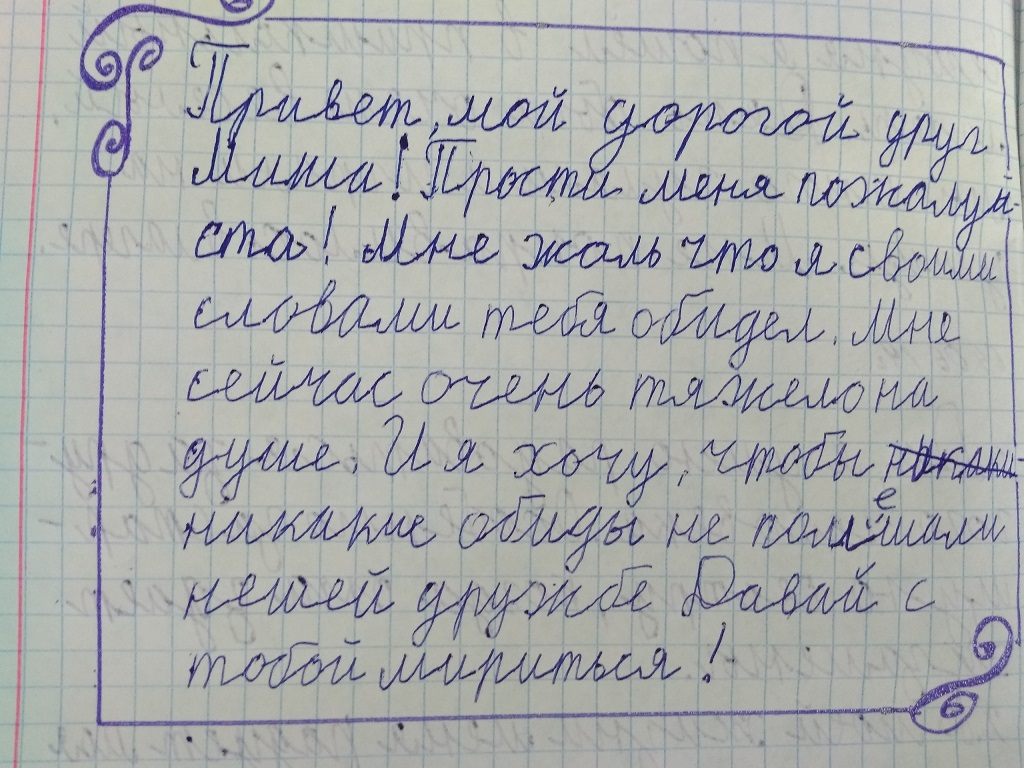 Привет, мой дорогой друг
Миша! Прости меня пожалуй-
ста! Мне жаль что я своими
словами тебя обидел. Мне
сейчас очень тяжело на
душе. И я хочу, чтобы
никакие обиды не помешали
нешей дружбе Давай с
тобой мириться!